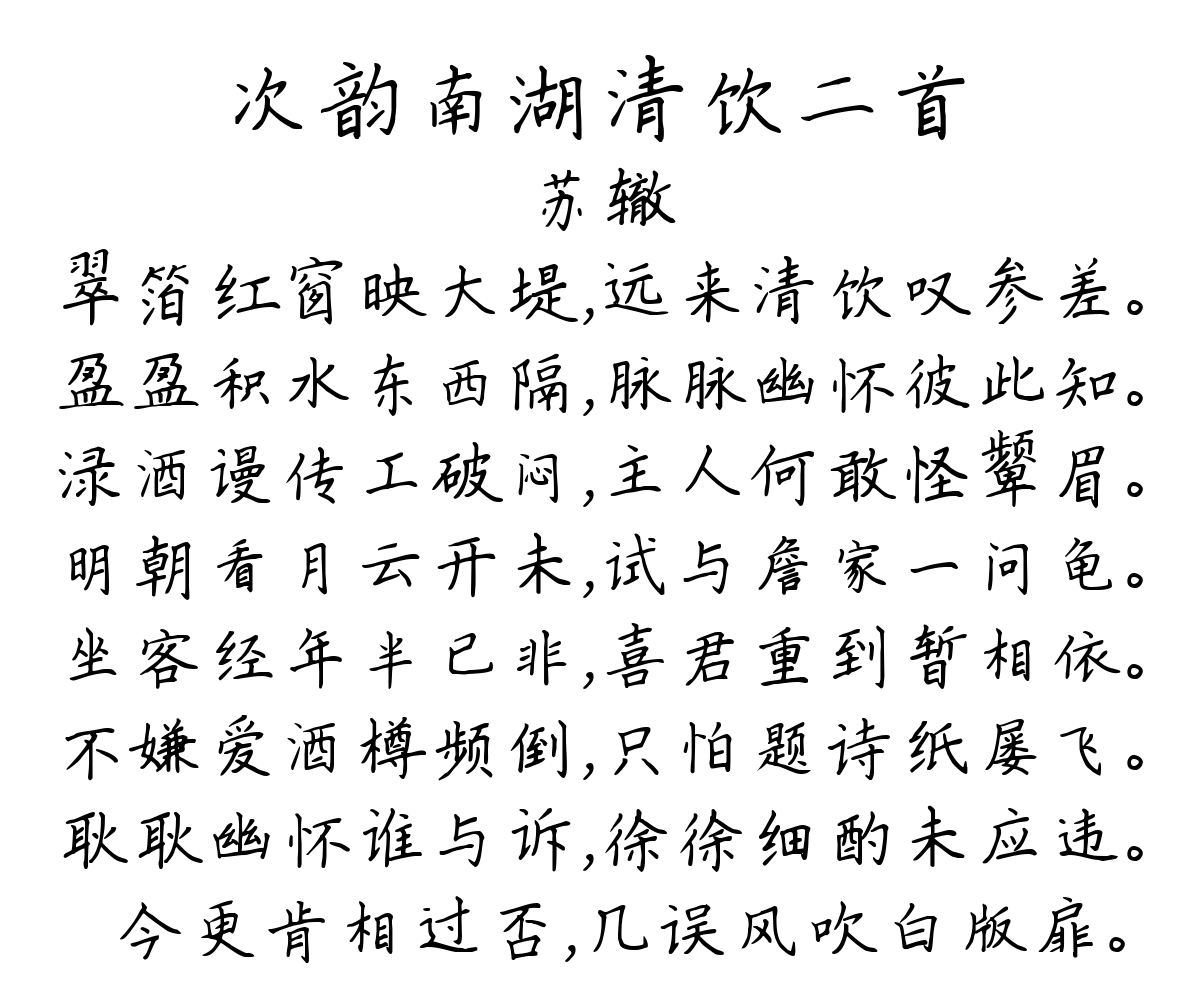 次韵南湖清饮二首
苏辙
翠箔红窗映大堤,远来清饮叹参差。
盈盈积水东西隔,脉脉幽怀彼此知。
渌酒谩传工破闷,主人何敢怪颦眉。
明朝看月云开未,试与詹家一问龟。
坐客经年半已非,喜君重到暂相依。
不嫌爱酒樽频倒,只怕题诗纸屡飞。
耿耿幽怀谁与诉,徐徐细酌未应违。
今更肯相过否,几误风吹白版扉。